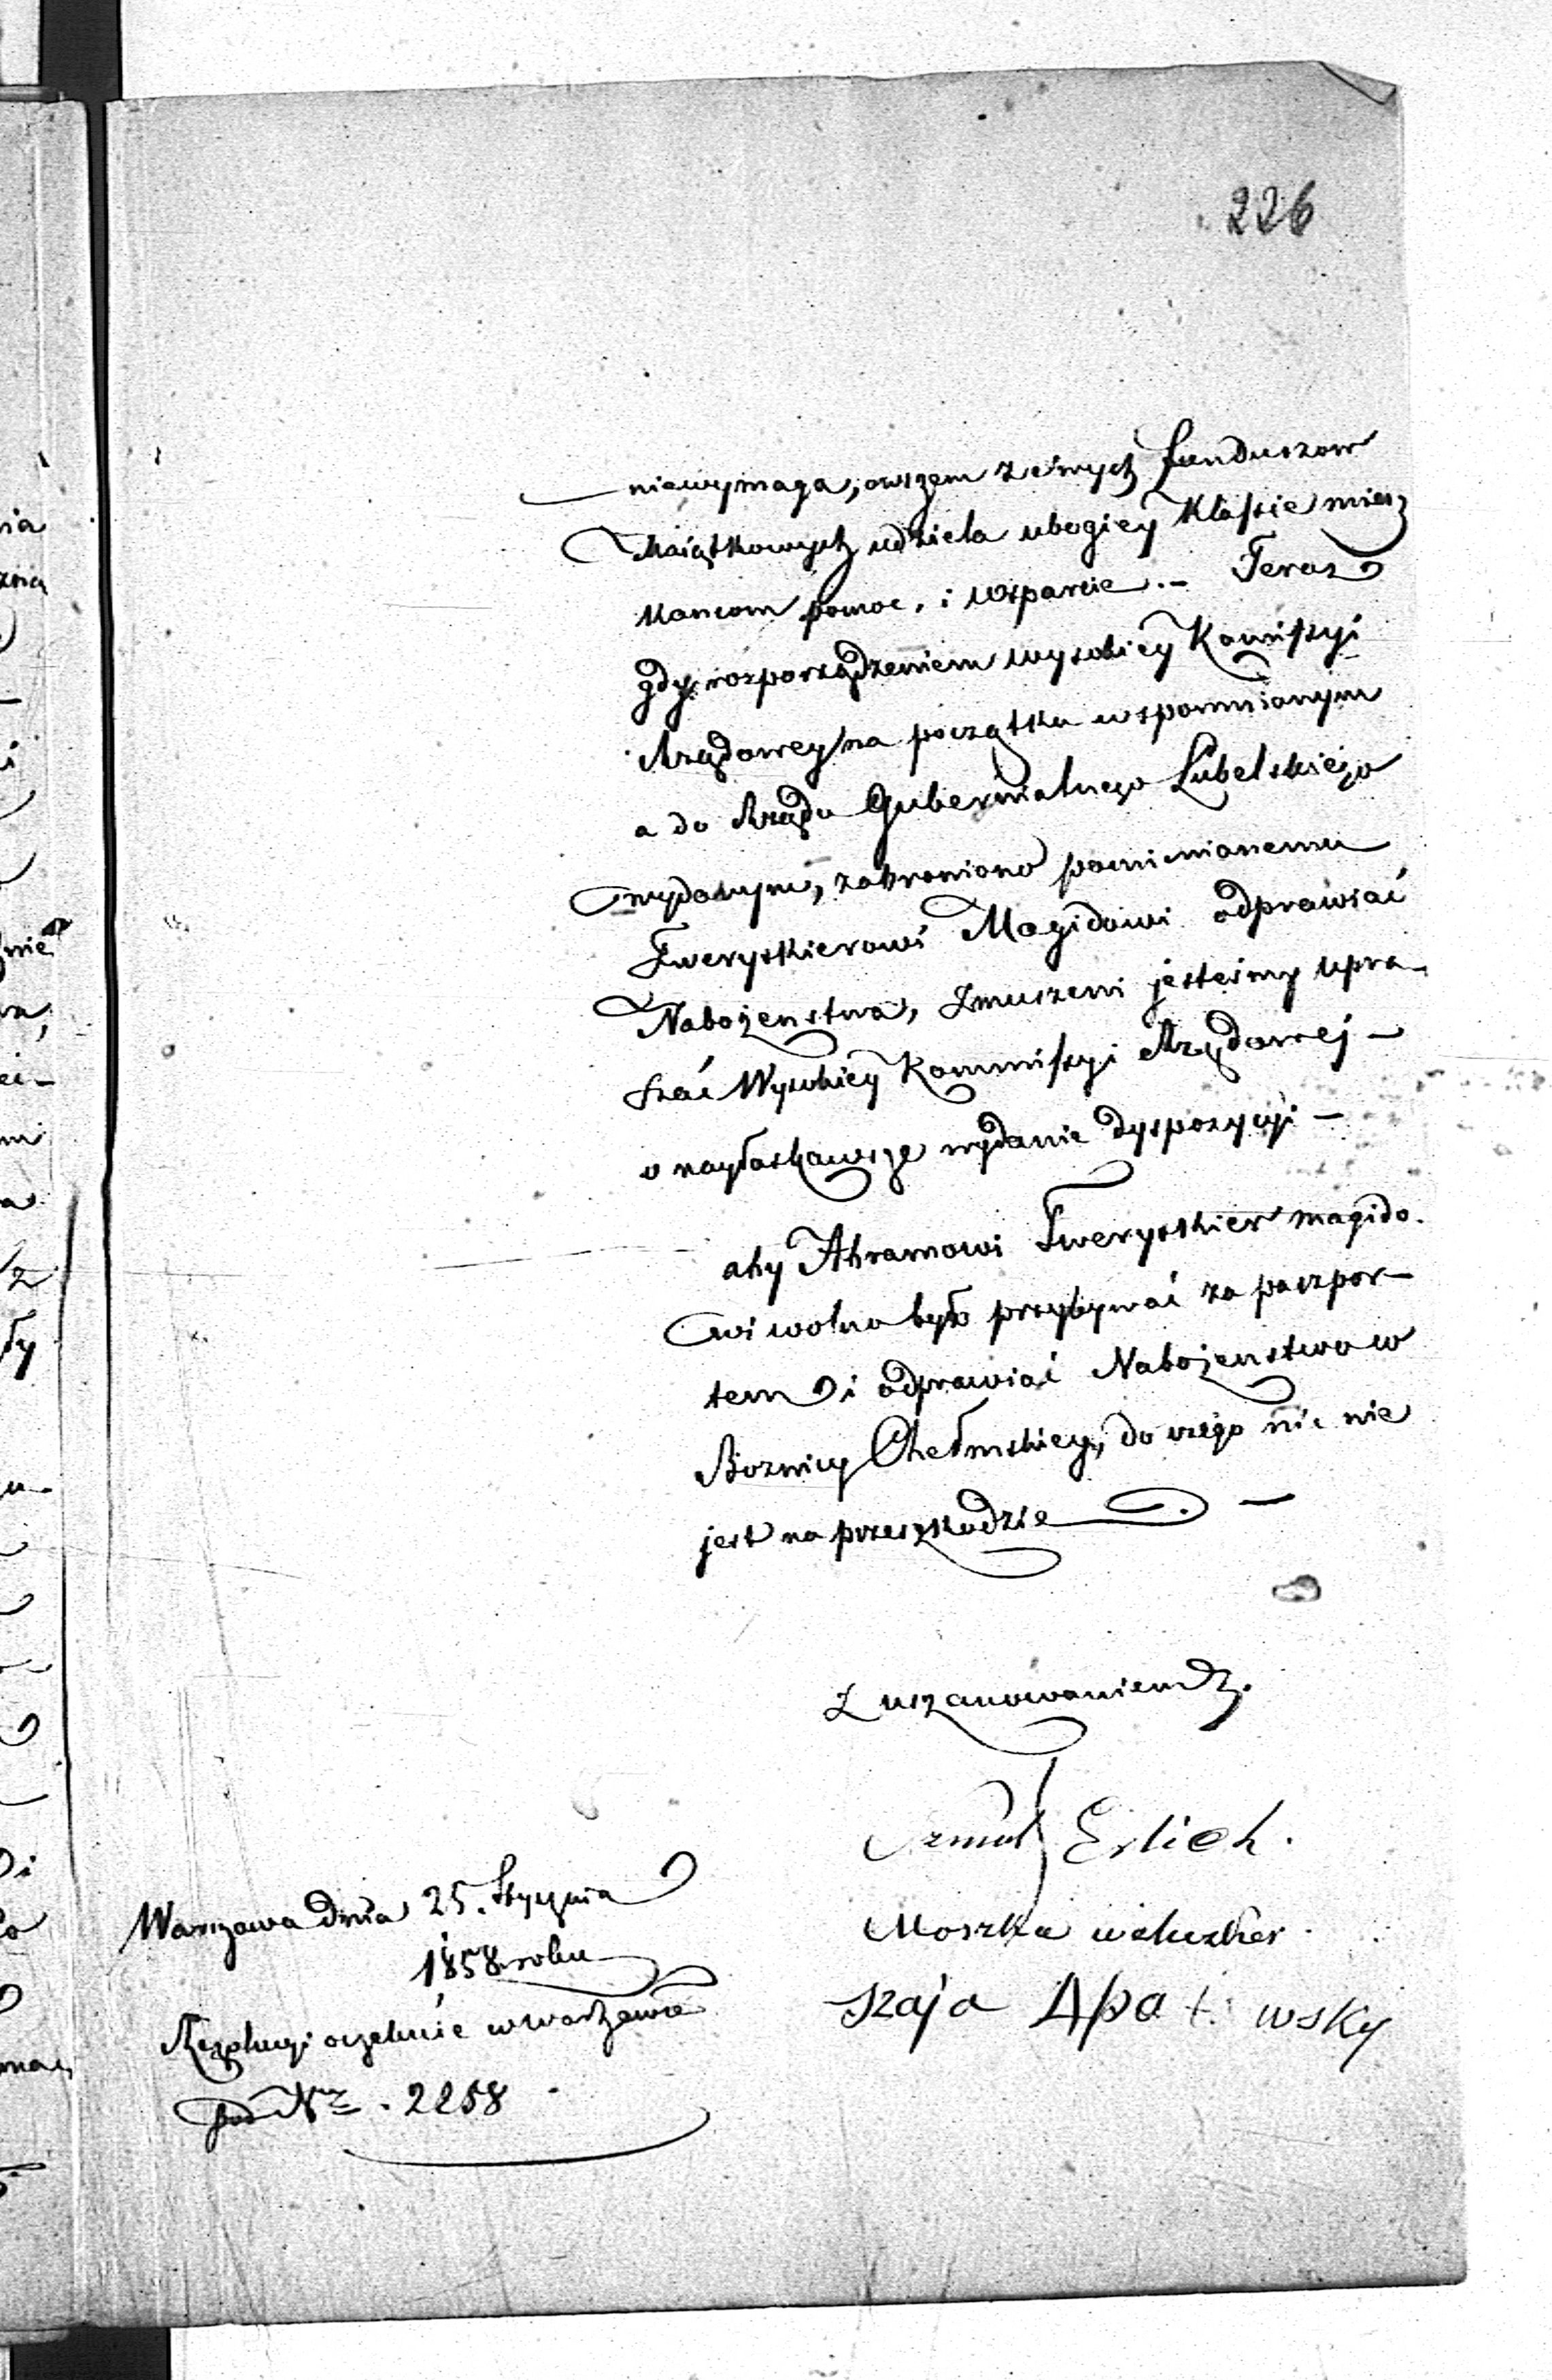 226
niewymaga, owszem z innych funduszow
Maiątkowych udziela ubogiey Klassie miesz
kancom pomoc, i wsparcie. – Teraz
gdy rozporządzeniem wysokiey Kommissyi
Rządowey na początku wspomnianym
a do Rządu Gubernialnego Lubelskiego
wydanym, zabroniono pomienionemu
Tweryskierowi Magidowi odprawiać
Nabożenstwa, zmuszeni jesteśmy upra-
szać Wysokiey Kommissyi Rządowej –
o nayłaskawsze wydanie dyspozycyi –
aby Abramowi Tweryskier magido.
wi wolno było przybywać za paszpor–
tem i odprawiać Nabożenstwo w
Boznicy Chełmskiey, do czego nic nie
jest na przeszkodzie. –
Z uszanowaniem
Szmul Erlich.
Moszka
Szaja Apat wsky
Warszawa dnia 25. Stycznia
1858 roku
Rezolucyi oczekuie w Warszawie
pod Nr . 2258